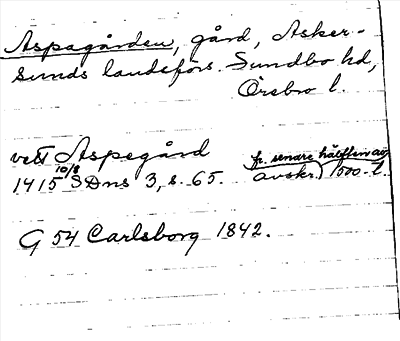 Aspagården, gård, Asker-
sunds landsförs. Sundbo hd,
Örebro l.
vett Aspegård
1415 10/8 SDns 3, s. 65. (avskr. fr. senare hälften av 1500-t.
G 54 Carlsborg 1842.